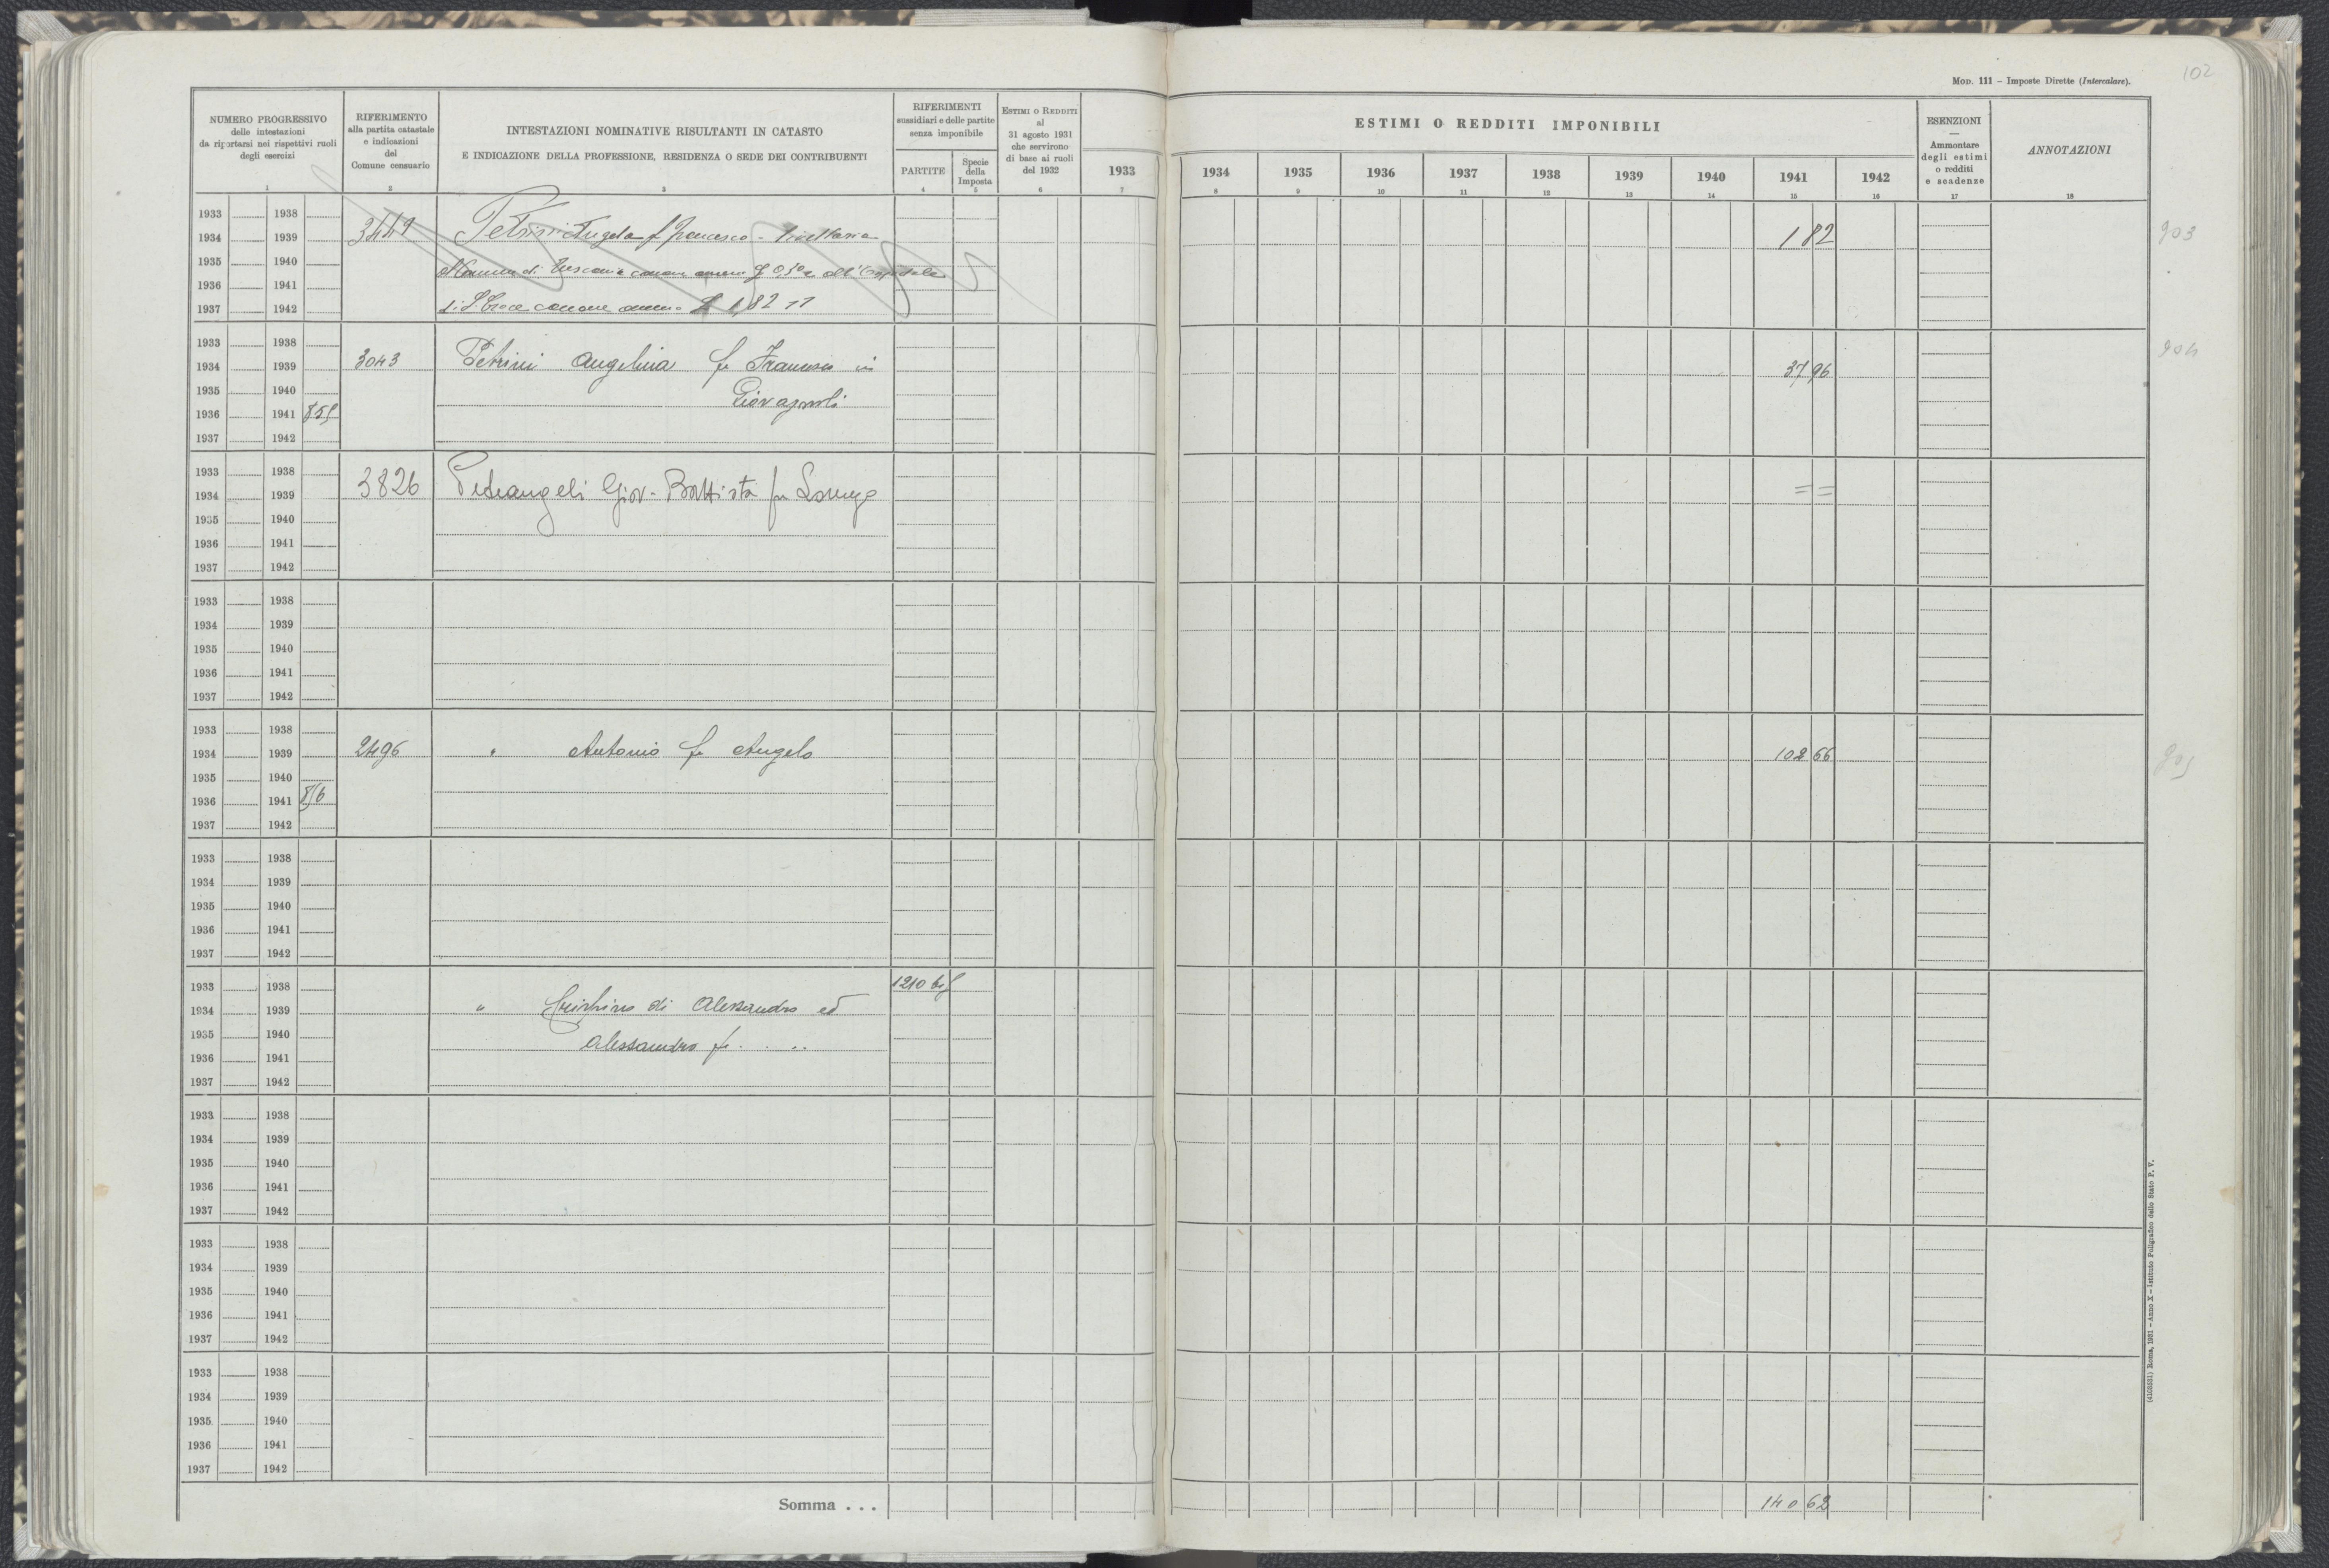 102
MOD. 111 – Imposte Dirette (Intercalare).
NUMERO PROGRESSIVO delle intestazioni da riportarsi nei rispettivi ruoli degli esercizi
RIFERIMENTO alla partita catastale e indicazioni del Comune censuario
INTESTAZIONI NOMINATIVE RISULTANTI IN CATASTO
E INDICAZIONE DELLA PROFESSIONE, RESIDENZA O SEDE DEI CONTRIBUENTI
RIFERIMENTI sussidiari e delle partite senza imponibile
PARTITE
Specie della Imposta
ESTIMI O REDDITI al 31 agosto 1931 che servirono di base ai ruoli del 1932
ESTIMI O REDDITI IMPONIBILI
1933 1934 1935 1936 1937 1938 1939 1940 1941 1942
ESENZIONI — Ammontare degli estimi o redditi e scadenze
ANNOTAZIONI
1 2 3 4 5 6 7 8 9 10 11 12 13 14 15 16 17 18
1933 1938
1934 1939 3449 Petrini Angela f Francesco - livellaria 1 82 903
1935 1940
1936 1941
1937 1942 di S. Croce canone annuo £ 1,82 11
1933 1938
1934 1939 3043 Petrini Angelina fu Francesco in 37 96 904
1935 1940 Giovagnoli
1936 1941 855
1937 1942
1933 1938
1934 1939 3826 Petrangeli Giov. Battista fu Lorenzo = =
1935 1940
1936 1941
1937 1942
1933 1938
1934 1939
1935 1940
1936 1941
1937 1942
1933 1938
1934 1939 2496 " Antonio fu Angelo 102 66 905
1935 1940
1936 1941 856
1937 1942
1933 1938
1934 1939
1935 1940
1936 1941
1937 1942
1933 1938 1210 bis
1934 1939 " di Alessandro ed
1935 1940 Alessandro fu . . ..
1936 1941
1937 1942
1933 1938
1934 1939
1935 1940
1936 1941
1937 1942
1933 1938
1934 1939
1935 1940
1936 1941
1937 1942
1933 1938
1934 1939
1935 1940
1936 1941
1937 1942
Somma . . . 140 62
(4103531) Roma, 1931 – Anno X – Istituto Poligrafico dello Stato P. V.